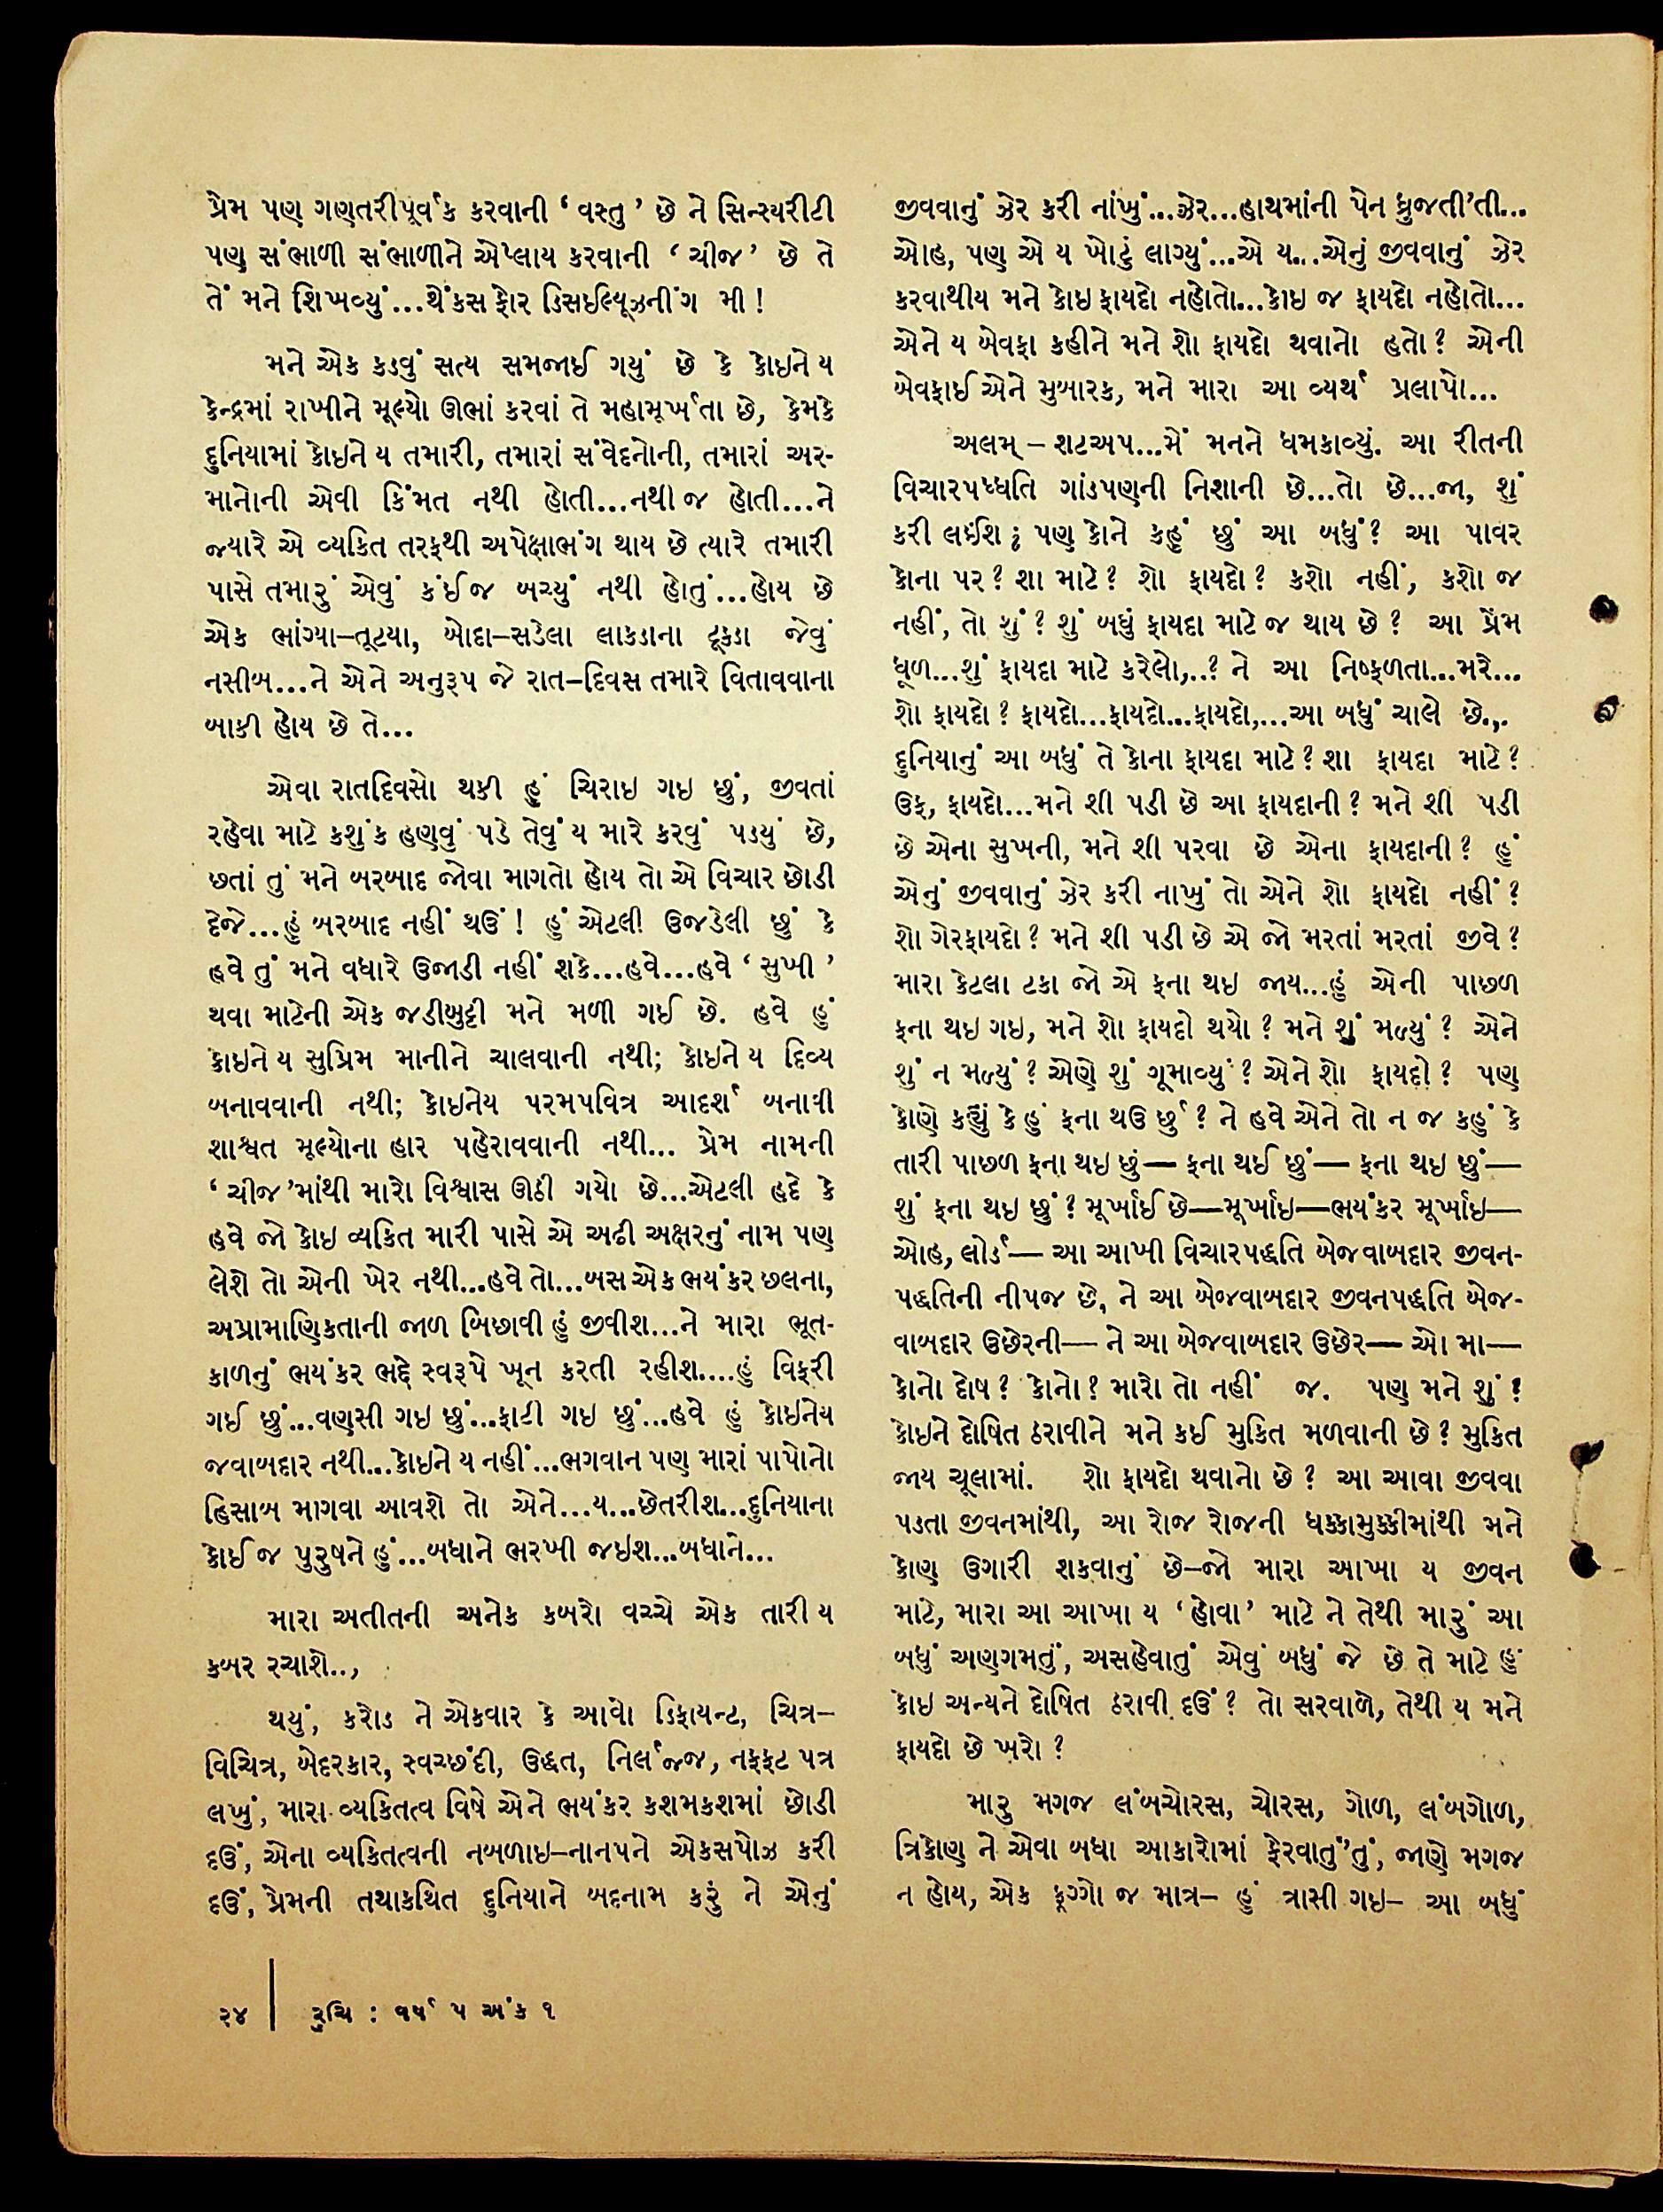 પ્રેમ પણ ગણતરીપૂર્વક કરવાની ‘ વસ્તુ ’ છે ને સિન્સ્યરીટી
પણ સંભાળી સંભાળીને એપ્લાય કરવાની ‘ ચીજ ’ છે તે
તેં મને શિખવ્યું...થેંકસ ફોર ડિસઈલ્યૂઝનીંગ મી !
મને એક કડવું સત્ય સમજાઈ ગયું છે કે કોઇને ય
કેન્દ્રમાં રાખીને મૂલ્યો ઊભાં કરવાં તે મહામૂર્ખતા છે, કેમકે
દુનિયામાં કોઇને ય તમારી, તમારાં સંવેદનોની, તમારાં અર-
માનોની એવી કિંમત નથી હોતી...નથી જ હોતી...ને
જ્યારે એ વ્યકિત તરફથી અપેક્ષાભંગ થાય છે ત્યારે તમારી
પાસે તમારું એવું કંઈજ બચ્યું નથી હોતું...હોય છે
એક ભાંગ્યા–તૂટયા, ખોદા–સડેલા લાકડાના ટૂકડા જેવું
નસીબ...ને એને અનુરૂપ જે રાત–દિવસ તમારે વિતાવવાના
બાકી હોય છે તે...
એવા રાતદિવસો થકી હું ચિરાઇ ગઇ છું, જીવતાં
રહેવા માટે કશુંક હણવું પડે તેવું ય મારે કરવું પડયું છે,
છતાં તું મને બરબાદ જોવા માગતો હોય તો એ વિચાર છોડી
દેજે...હું બરબાદ નહીં થઉં ! હું એટલી ઉજડેલી છું કે
હવે તું મને વધારે ઉજાડી નહીં શકે...હવે...હવે ‘ સુખી ’
થવા માટેની એક જડીબુટ્ટી મને મળી ગઈ છે. હવે હું
કોઇને ય સુપ્રિમ માનીને ચાલવાની નથી; કોઇને ય દિવ્ય
બનાવવાની નથી; કોઇનેય પરમપવિત્ર આદર્શ બનાવી
શાશ્વત મૂલ્યોના હાર પહેરાવવાની નથી... પ્રેમ નામની
‘ ચીજ ’માંથી મારો વિશ્વાસ ઊઠી ગયો છે...એટલી હદે કે
હવે જો કોઇ વ્યકિત મારી પાસે એ અઢી અક્ષરનું નામ પણ
લેશે તો એની ખેર નથી...હવે તો...બસ એક ભયંકર છલના,
અપ્રામાણિકતાની જાળ બિછાવી હું જીવીશ...ને મારા ભૂત-
કાળનું ભયંકર ભદ્દે સ્વરૂપે ખૂન કરતી રહીશ....હું વિફરી
ગઈ છું...વણસી ગઇ છું...ફાટી ગઇ છું...હવે હું કોઇનેય
જવાબદાર નથી...કોઇને ય નહીં...ભગવાન પણ મારાં પાપોનો
હિસાબ માગવા આવશે તો એને...ય...છેતરીશ...દુનિયાના
કોઈ જ પુરુષને હું...બધાને ભરખી જઇશ...બધાને...
મારા અતીતની અનેક કબરો વચ્ચે એક તારી ય
કબર રચાશે..,
થયું, કરોડ ને એકવાર કે આવો ડિફાયન્ટ, ચિત્ર–
વિચિત્ર, બેદરકાર, સ્વચ્છંદી, ઉદ્ધત, નિર્લજ્જ, નફ્ફટ પત્ર
લખું, મારા વ્યકિતત્વ વિષે એને ભયંકર કશમકશમાં છોડી
દઉં, એના વ્યકિતત્વની નબળાઇ–નાનપને એકસપોઝ કરી
દઉં, પ્રેમની તથાકથિત દુનિયાને બદનામ કરું ને એનું
જીવવાનું ઝેર કરી નાંખું...ઝેર...હાથમાંની પેન ધ્રુજતી'તી...
ઓહ, પણ એ ય ખોટું લાગ્યું...એ ય...એનું જીવવાનું ઝેર
કરવાથીય મને કોઇ ફાયદો નહોતો...કોઇ જ ફાયદો નહોતો...
એને ય બેવફા કહીને મને શો ફાયદો થવાનો હતો? એની
બેવફાઈ એને મુબારક, મને મારા આ વ્યર્થ પ્રલાપો...
અલમ્ – શટઅપ...મેં મનને ધમકાવ્યું. આ રીતની
વિચારપધ્ધતિ ગાંડપણની નિશાની છે...તો છે...જા, શું
કરી લઈશ ; પણ કોને કહું છું આ બધું? આ પાવર
કોના પર? શા માટે? શો ફાયદો? કશો નહીં, કશો જ
નહીં, તો શું? શું બધું ફાયદા માટે જ થાય છે? આ પ્રેમ
ધૂળ...શું ફાયદા માટે કરેલો,..? ને આ નિષ્ફળતા...મરે...
શો ફાયદો? ફાયદો...ફાયદો...ફાયદો,...આ બધું ચાલે છે.,.
દુનિયાનું આ બધું તે કોના ફાયદા માટે? શા ફાયદા માટે?
ઉફ, ફાયદો...મને શી પડી છે આ ફાયદાની? મને શી પડી
છે એના સુખની, મને શી પરવા છે એના ફાયદાની? હું
એનું જીવવાનું ઝેર કરી નાખું તો એને શો ફાયદો નહીં?
શો ગેરફાયદો? મને શી પડી છે એ જો મરતાં મરતાં જીવે?
મારા કેટલા ટકા જો એ ફના થઇ જાય...હું એની પાછળ
ફના થઇ ગઇ, મને શો ફાયદો થયો? મને શું મળ્યું? એને
શું ન મળ્યું? એણે શું ગૂમાવ્યું? એને શો ફાયદો? પણ
કોણે કહ્યું કે હું ફના થઉં છું? ને હવે એને તો ન જ કહું કે
તારી પાછળ ફના થઇ છું— ફના થઈ છું— ફના થઇ છું—
શું ફના થઇ છું? મૂર્ખાઈ છે—મૂર્ખાઇ—ભયંકર મૂર્ખાઇ—
ઓહ, લોર્ડ— આ આખી વિચારપદ્ધતિ બેજવાબદાર જીવન-
પદ્ધતિની નીપજ છે, ને આ બેજવાબદાર જીવનપદ્ધતિ બેજ-
વાબદાર ઉછેરની— ને આ બેજવાબદાર ઉછેર— ઓ મા—
કોનો દોષ? કોનો? મારો તો નહીં જ. પણ મને શું?
કોઇને દોષિત ઠરાવીને મને કઈ મુકિત મળવાની છે? મુકિત
જાય ચૂલામાં. શો ફાયદો થવાનો છે? આ આવા જીવવા
પડતા જીવનમાંથી, આ રોજ રોજની ધક્કામુક્કીમાંથી મને
કોણ ઉગારી શકવાનું છે–જો મારા આખા ય જીવન
માટે, મારા આ આખા ય ‘હોવા’ માટે ને તેથી મારું આ
બધું અણગમતું, અસહેવાતું એવું બધું જે છે તે માટે હું
કોઇ અન્યને દોષિત ઠરાવી દઉં? તો સરવાળે, તેથી ય મને
ફાયદો છે ખરો ?
મારુ મગજ લંબચોરસ, ચોરસ, ગોળ, લંબગોળ,
ત્રિકોણ ને એવા બધા આકારોમાં ફેરવાતું'તું, જાણે મગજ
ન હોય, એક ફૂગ્ગો જ માત્ર– હું ત્રાસી ગઇ– આ બધું
૨૪ | રુચિ : વર્ષ ૫ અંક ૧